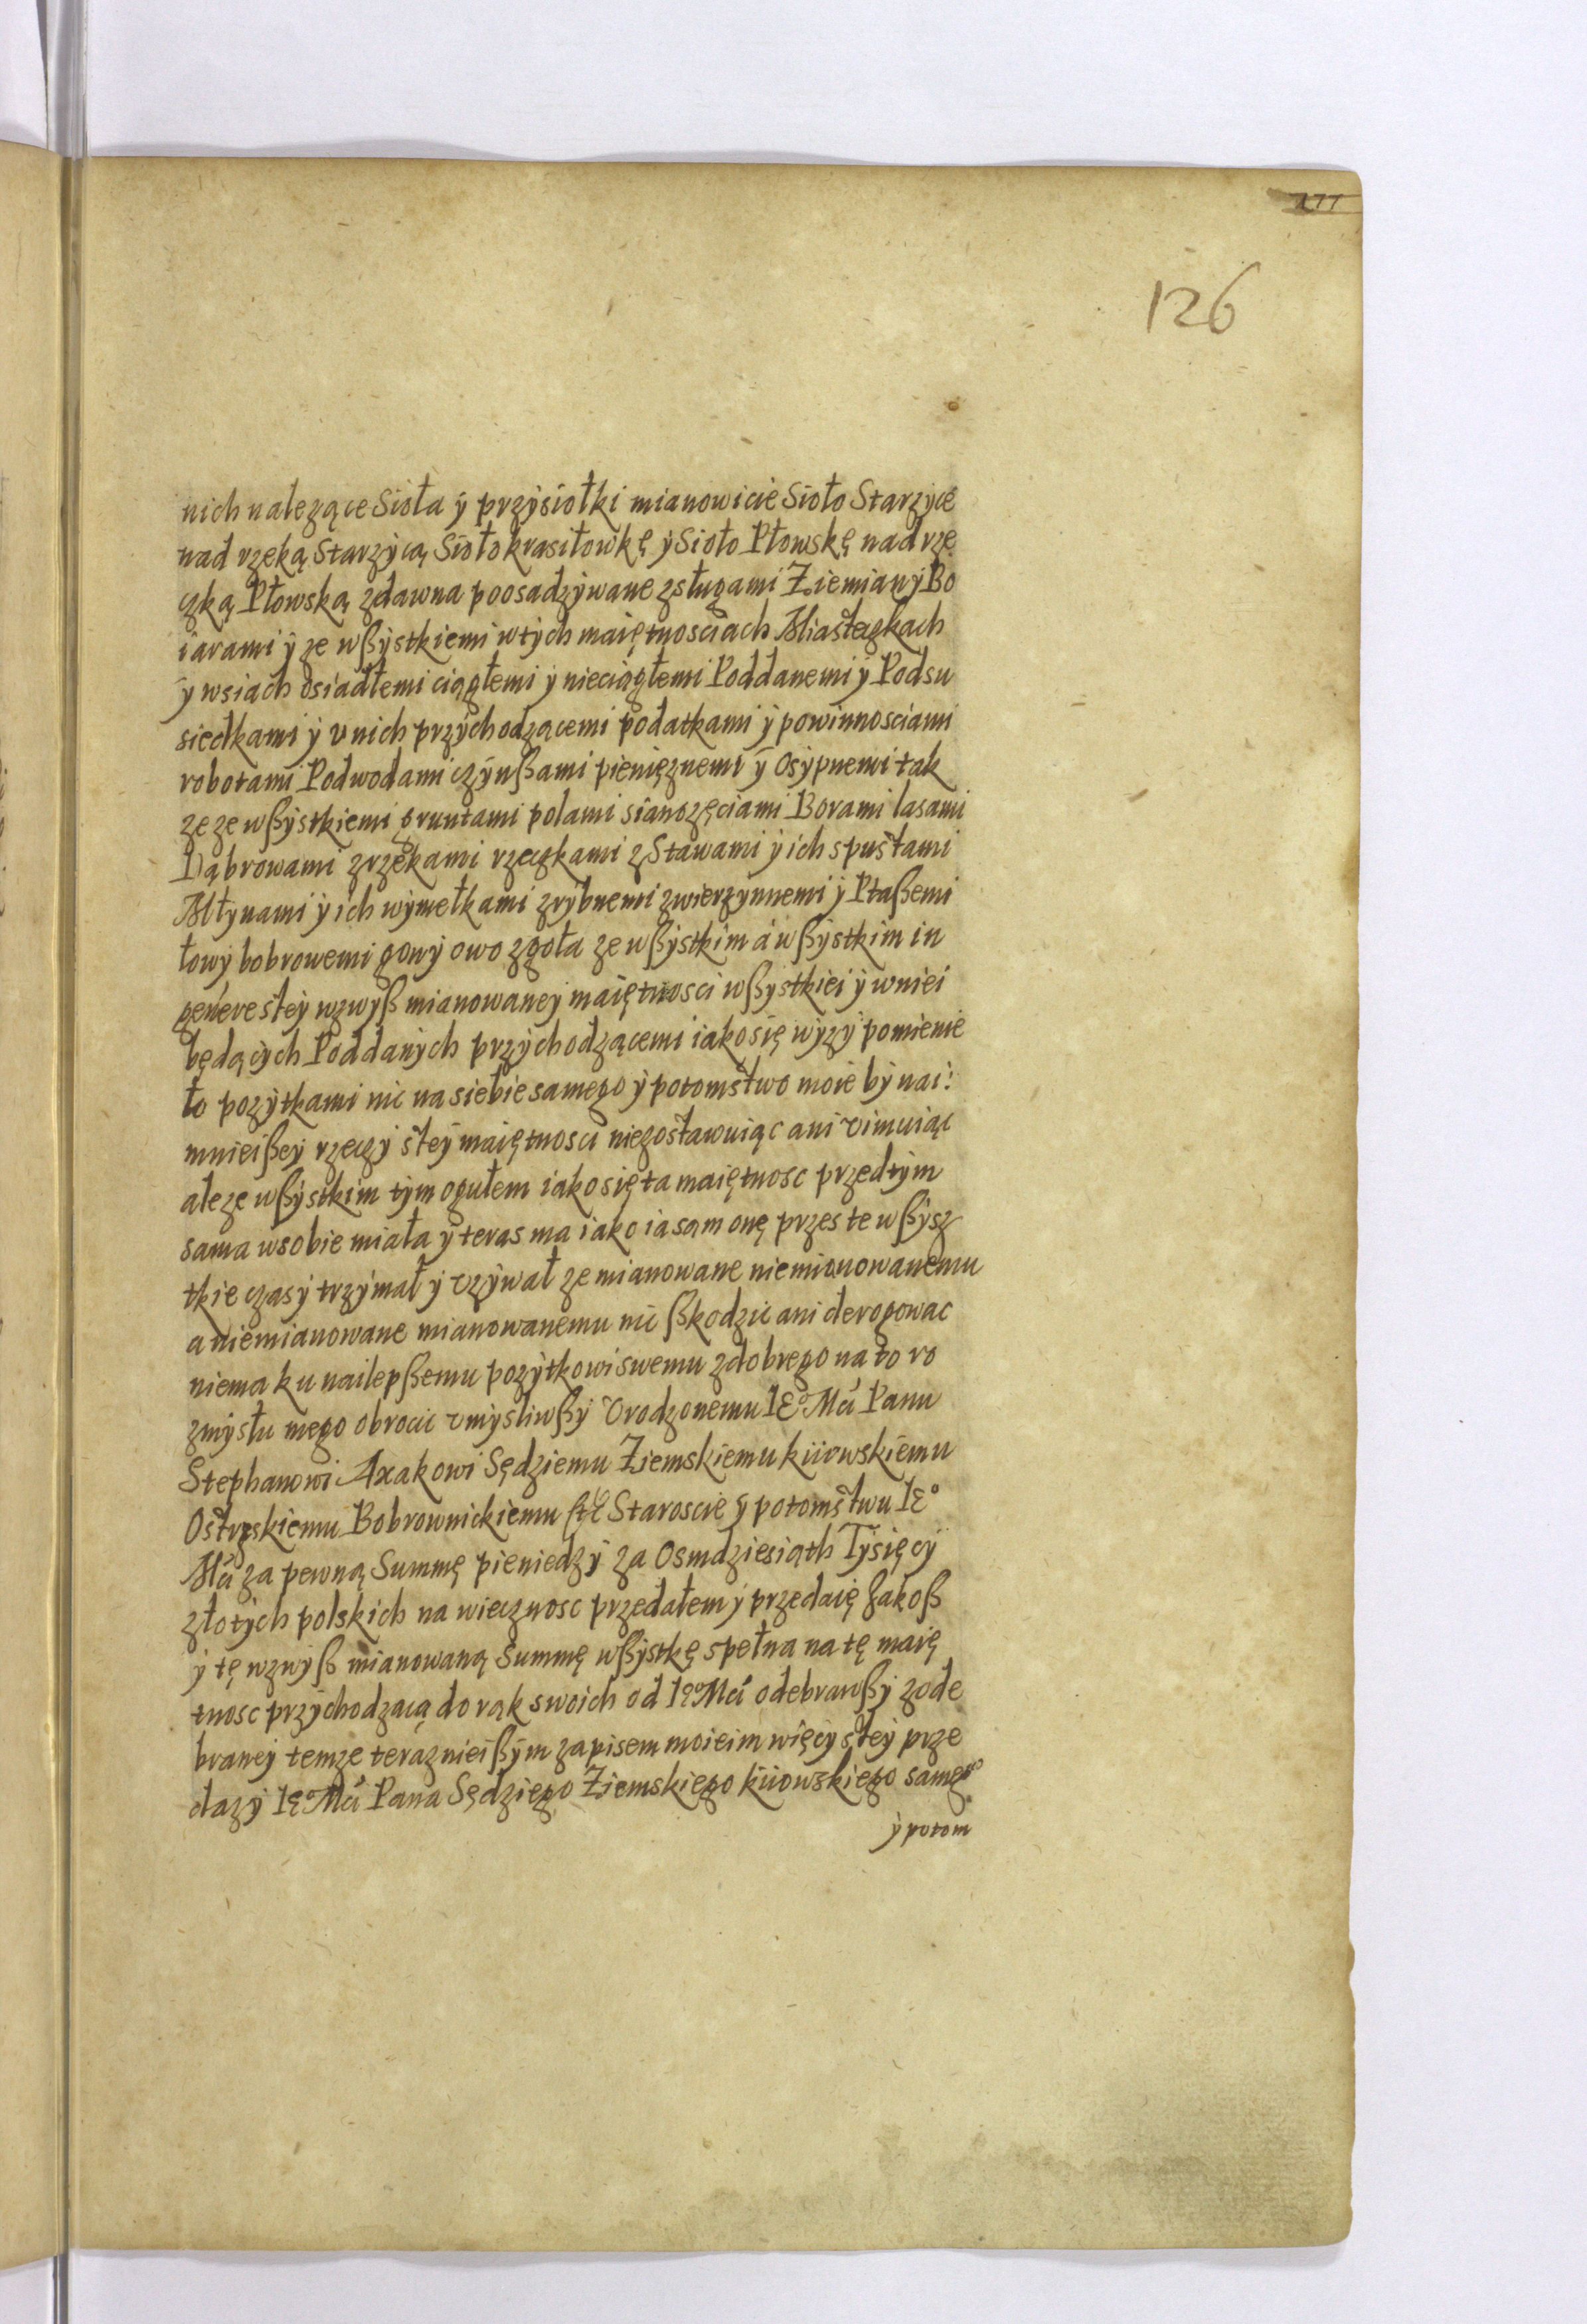 177
126
nich nalezące Sioła ÿ przÿsiołki mianowicie Sioło Starzÿce
nad rzeką Starzÿcą Sioło krasiłowkę ÿ Sioło Płowskę nad rze
czką Płowską zdawna poosadzÿwane zsługami Ziemianÿ Bo
iarami ÿ ze wßÿstkiemi wtÿch maiętnosciach Miasteczkach
ÿ wsiach osiadłemi ciągłemi ÿ nieciągłemi Poddanemi ÿ Podsu
siedkami ÿ v nich przÿchodzącemi podatkami ÿ powinnosciami
robotami Podwodami czÿnßami pienięznemi ÿ Osÿpnemi tak
ze ze wßÿstkiemi gruntami polami sianozęciami Borami lasami
Dąbrowami zrzekami rzeczkami z Stawami ÿ ich spustami
Młynami ÿ ich wÿmełkami zrÿbnemi zwierzynnemi ÿ Ptaßemi
łowÿ bobrowemi gonÿ owo zgoła ze wßÿstkim á wßÿstkim in
genere steÿ wzwÿß mianowaneÿ maiętnosci wßÿstkiei ÿ wniei
będącÿch Poddanÿch przÿchodzącemi iako się wÿzÿ pomienie
ło pozÿtkami nic na siebie samego ÿ potomstwo moie bÿ nai:
mnieißeÿ rzeczÿ steÿ maiętnosci niezostawuiąc ani vimuiąc
ale ze wßÿstkim tÿm ogułem iako się ta maiętnosc przedtÿm
sama wsobie miała ÿ teras ma iako ia sam onę przes te wßÿsz
tkie czasÿ trzÿmał ÿ vzÿwał ze mianowane niemianowanemu
a niemianowane mianowanemu nic ßkodzic ani derogowac
niema ku nailepßemu pozÿtkowi swemu zdobrego na to ro
zmÿsłu mego obrocic vmÿsliwßÿ Vrodzonemu IE° Mci Panu
Stephanowi Axakowi Sędziemu Ziemskiemu kiiowskiemu
Ostrzskiemu Bobrownickiemu Staroscie ÿ potomstwu IE°
Mci za pewną Summę pieniedzÿ za Osmdziesiąth Tÿsięcÿ
złotÿch polskich na wiecznosc przedałem ÿ przedaię Jakoß
ÿ tę wzwÿß mianowaną Summę wßÿstkę spełna na tę maię
tnosc przÿchodzącą do rąk swoich od IE° Mci odebrawßÿ zode
braneÿ temze teraznieißÿm zapisem moieim więcÿsteÿ prze
dazÿ IE° Mci Pana Sędziego Ziemskiego kiiowskiego samego
ÿ potom